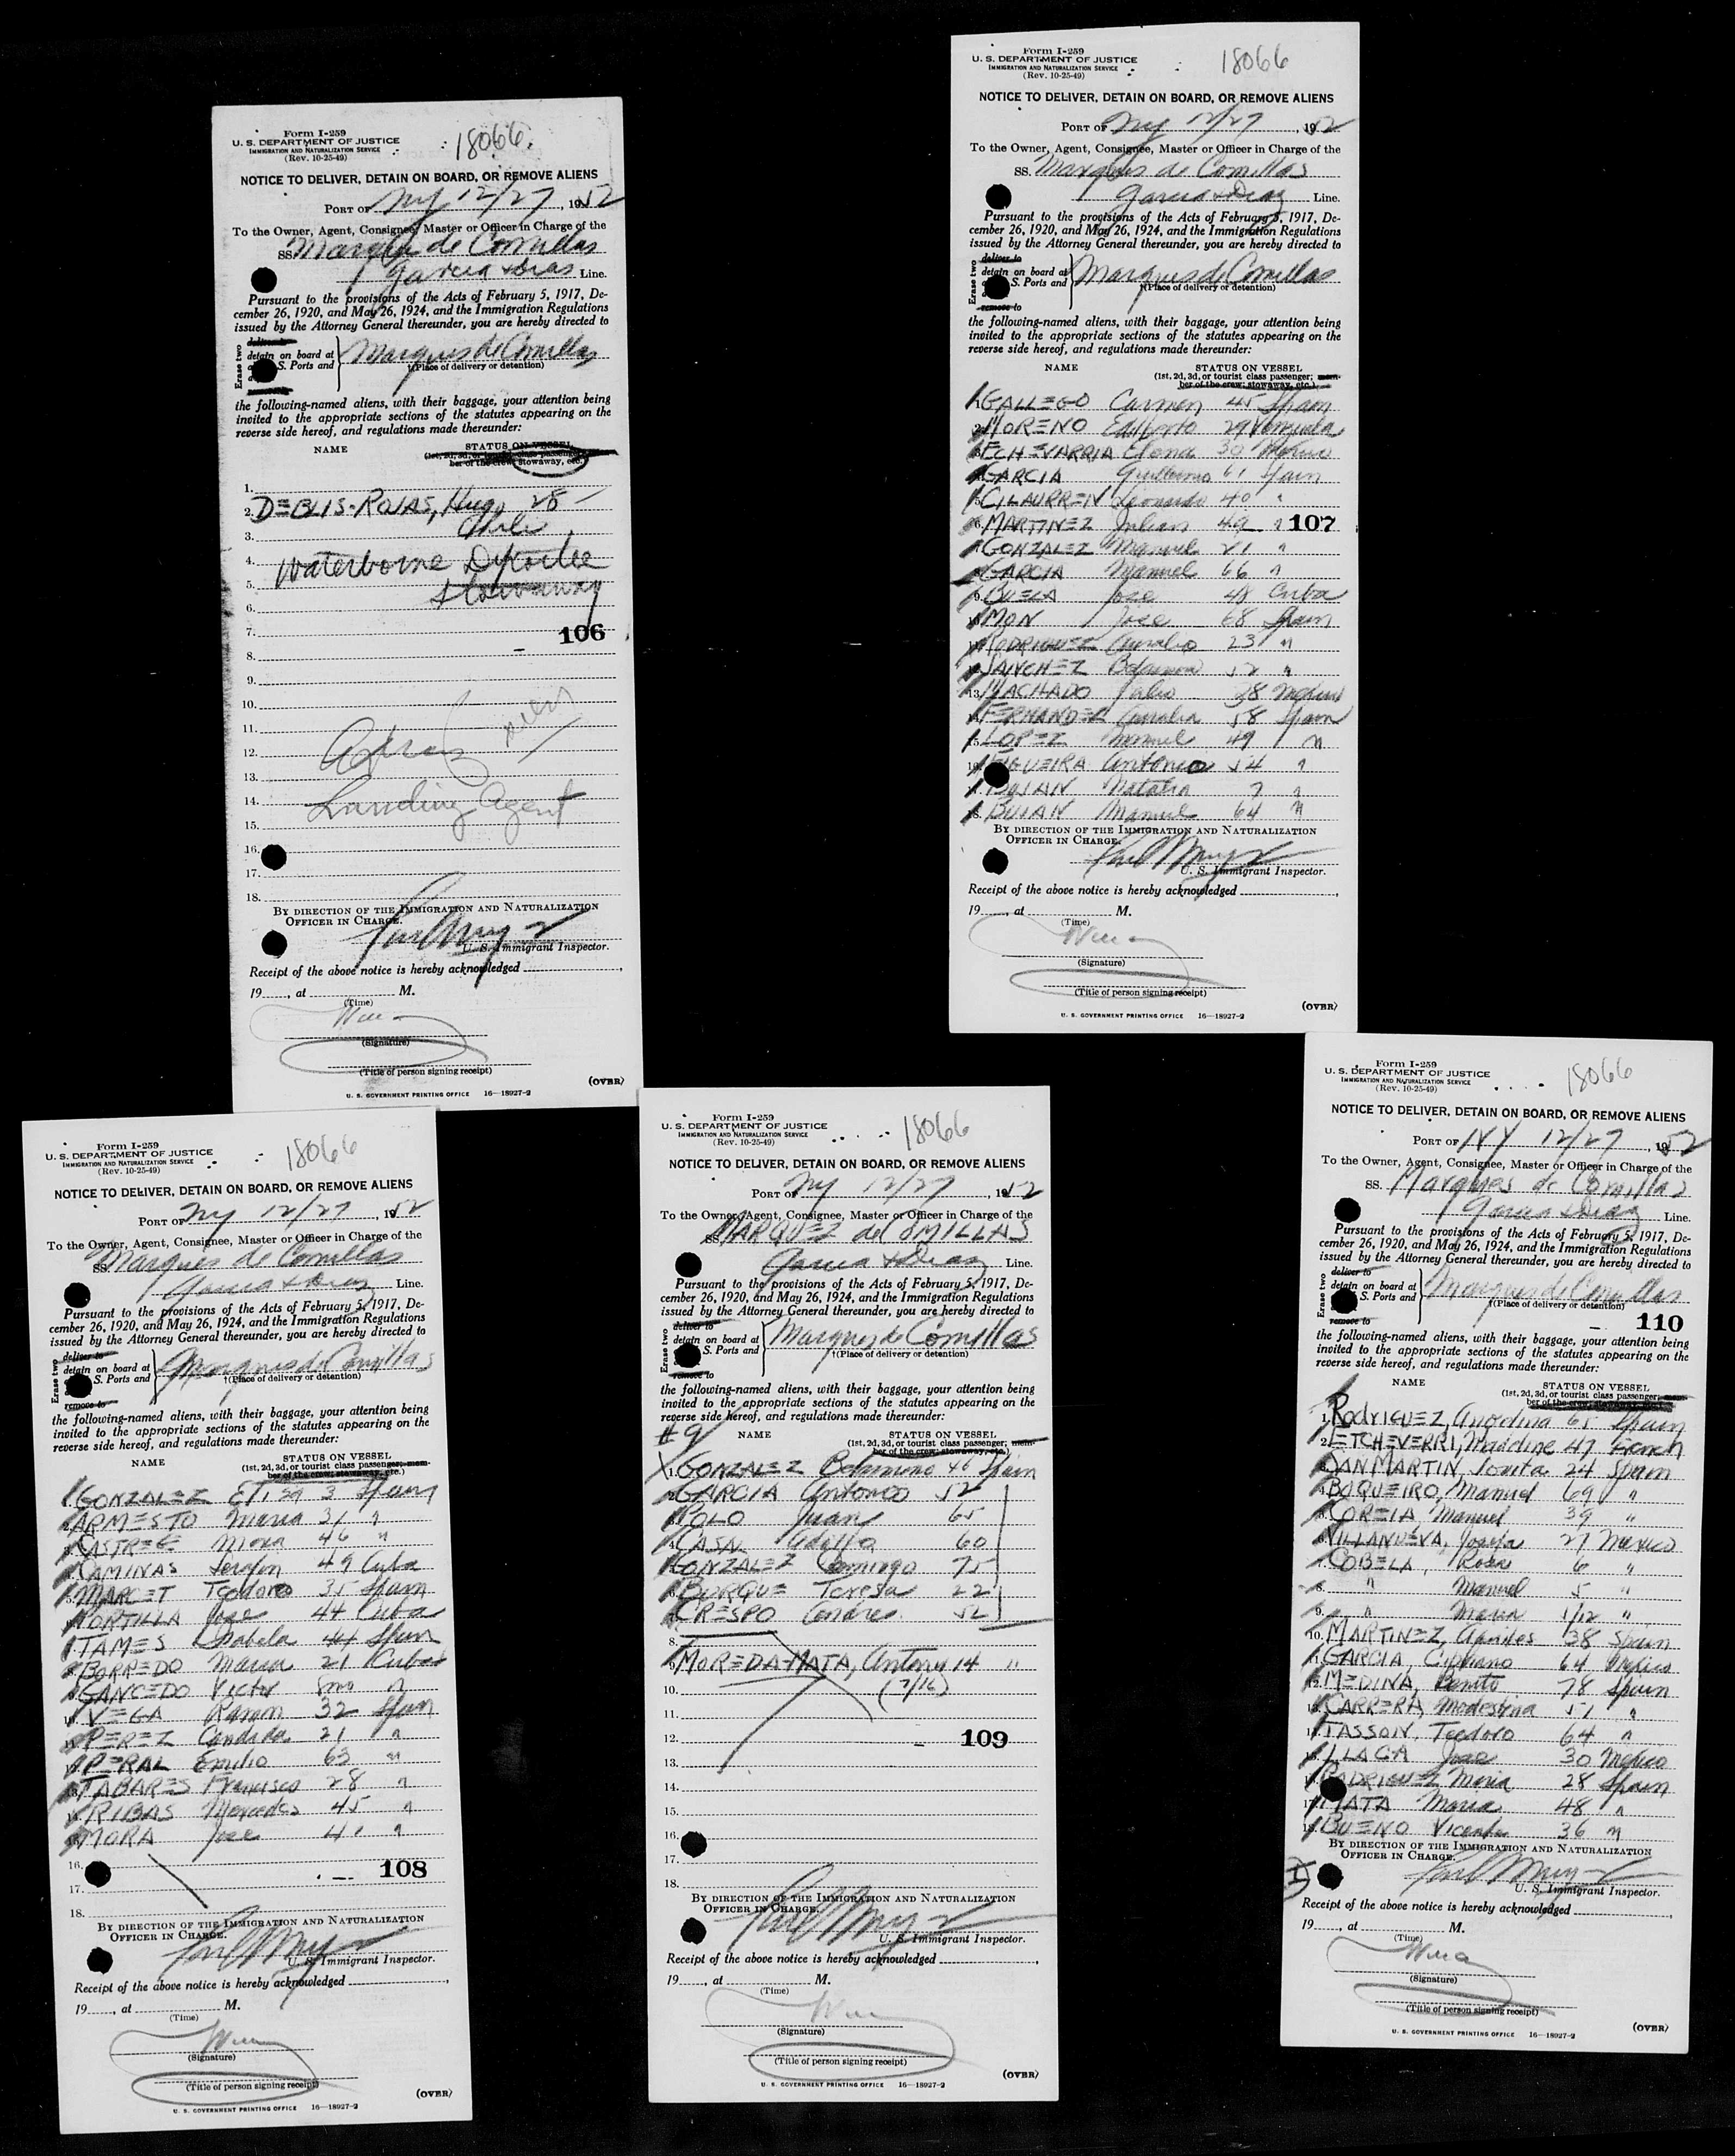 Form I-259
U. S. DEPARTMENT OF JUSTICE
IMMIGRATION AND NATURALIZATION SERVICE
(Rev. 10-25-49)
18066
NOTICE TO DELIVER, DETAIN ON BOARD, OR REMOVE ALIENS
PORT OF NY 12/27, 1952
To the Owner, Agent, Consignee, Master or Officer in Charge of the
SS Marques de Comillas
Garcia & Dias Line.
Pursuant to the provisions of the Acts of February 5, 1917, De-
cember 26, 1920, and May 26, 1924, and the Immigration Regulations
issued by the Attorney General thereunder, you are hereby directed to
Erase two
deliver to
detain on board at
S. Ports and
Marques de Comillas
†(Place of delivery or detention)
the following-named aliens, with their baggage, your attention being
invited to the appropriate sections of the statutes appearing on the
reverse side hereof, and regulations made thereunder:
NAME STATUS ON VESSEL
(1st, 2d, 3d, or tourist class passenger;
ber of the crew; stowaway, etc.)
1.
2. DEBLIS-ROJAS, Hugo 28 –
3. Chile
4. Waterborne Deportee
5. Stowaway
6.
7. 106
8.
9.
10.
11.
12.
13.
14. Landing Agent
15.
16.
17.
18.
BY DIRECTION OF THE IMMIGRATION AND NATURALIZATION
OFFICER IN CHARGE.
U. S. Immigrant Inspector.
Receipt of the above notice is hereby acknowledged
19, at M.
(Time)
(Signature)
(Title of person signing receipt)
(OVER)
U. S. GOVERNMENT PRINTING OFFICE 16—18927-2
Form I-259
U. S. DEPARTMENT OF JUSTICE
IMMIGRATION AND NATURALIZATION SERVICE
(Rev. 10-25-49)
18066
NOTICE TO DELIVER, DETAIN ON BOARD, OR REMOVE ALIENS
PORT OF NY 12/27, 1952
To the Owner, Agent, Consignee, Master or Officer in Charge of the
SS. Marques de Comillas
Garcia & Diaz Line.
Pursuant to the provisions of the Acts of February 5, 1917, De-
cember 26, 1920, and May 26, 1924, and the Immigration Regulations
issued by the Attorney General thereunder, you are hereby directed to
Erase two
deliver to
detain on board at
S. Ports and
remove to
Marques de Comillas
†(Place of delivery or detention)
the following-named aliens, with their baggage, your attention being
invited to the appropriate sections of the statutes appearing on the
reverse side hereof, and regulations made thereunder:
NAME STATUS ON VESSEL
(1st, 2d, 3d, or tourist class passenger; mem-
ber of the crew; stowaway, etc.)
1. GALLEGO Carmen 45 Spain
2. MORENO Edilberto 29 Venzuela
3. ECHEVARRIA Elena 30 Mexico
4. GARCIA Guillermo 61 Spain
5. CILAURREN Leonardo 40 "
6. MARTINEZ Julian 49 " 107
7. GONZALEZ Manuel 21 "
8. GARCIA Manuel 66 "
9. BUELA Jose 48 Cuba
10. MON Jose 68 Spain
11. RODRIGUEZ Amalio 23 "
12. SANCHEZ 52 "
13. MACHADO Julio 38 Mexico
14. FERNANDEZ Amalia 58 Spain
15. LOPEZ Manuel 49 "
16. FIGUEIRA Antonio 54 "
17. BUJAN Natalia 7 "
18. BUJAN Manuel 64 "
BY DIRECTION OF THE IMMIGRATION AND NATURALIZATION
OFFICER IN CHARGE.
U. S. Immigrant Inspector.
Receipt of the above notice is hereby acknowledged
19, at M.
(Time)
(Signature)
(Title of person signing receipt)
(OVER)
U. S. GOVERNMENT PRINTING OFFICE 16—18927-2
Form I-259
U. S. DEPARTMENT OF JUSTICE
IMMIGRATION AND NATURALIZATION SERVICE
(Rev. 10-25-49)
18066
NOTICE TO DELIVER, DETAIN ON BOARD, OR REMOVE ALIENS
PORT OF NY 12/27, 1952
To the Owner, Agent, Consignee, Master or Officer in Charge of the
SS. Marques de Comillas
Garcia & Diaz Line.
Pursuant to the provisions of the Acts of February 5, 1917, De-
cember 26, 1920, and May 26, 1924, and the Immigration Regulations
issued by the Attorney General thereunder, you are hereby directed to
Erase two
deliver to
detain on board at
S. Ports and
remove to
Marques de Comillas
†(Place of delivery or detention)
the following-named aliens, with their baggage, your attention being
invited to the appropriate sections of the statutes appearing on the
reverse side hereof, and regulations made thereunder:
NAME STATUS ON VESSEL
(1st, 2d, 3d, or tourist class passenger; mem-
ber of the crew; stowaway, etc.)
1. GONZALEZ Elisa 3 Spain
2. ARMESTO Maria 31 "
3. CASTRE Maria 46 "
4. CAMINAS 49 Cuba
5. MARCET Teodoro 35 Spain
6. PORTILLA Jose 44 Cuba
7. TAMES Isabela 44 Spain
8. BORREDO Maria 21 Cuba
9. GANCEDO Victor 8mo "
10. VEGA Ramon 32 Spain
11. PEREZ Candida 21 "
12. PERAL Emilio 63 "
13. TABARES Francisco 28 "
14. RIBAS Mercedes 45 "
15. MORA Jose 41 "
16. 108
17.
18.
BY DIRECTION OF THE IMMIGRATION AND NATURALIZATION
OFFICER IN CHARGE.
U. S. Immigrant Inspector.
Receipt of the above notice is hereby acknowledged
19, at M.
(Time)
(Signature)
(Title of person signing receipt)
(OVER)
U. S. GOVERNMENT PRINTING OFFICE 16—18927-2
Form I-259
U. S. DEPARTMENT OF JUSTICE
IMMIGRATION AND NATURALIZATION SERVICE
(Rev. 10-25-49)
18066
NOTICE TO DELIVER, DETAIN ON BOARD, OR REMOVE ALIENS
PORT OF NY 12/27, 1952
To the Owner, Agent, Consignee, Master or Officer in Charge of the
SS MARQUEZ de COMILLAS
Garcia & Diaz Line.
Pursuant to the provisions of the Acts of February 5, 1917, De-
cember 26, 1920, and May 26, 1924, and the Immigration Regulations
issued by the Attorney General thereunder, you are hereby directed to
Erase two
deliver to
detain on board at
S. Ports and
remove to
Marques de Comillas
†(Place of delivery or detention)
the following-named aliens, with their baggage, your attention being
invited to the appropriate sections of the statutes appearing on the
reverse side hereof, and regulations made thereunder:
#9 NAME STATUS ON VESSEL
(1st, 2d, 3d, or tourist class passenger; mem-
ber of the crew; stowaway, etc.)
1. GONZALEZ Belarmino 46 Spain
2. GARCIA Antonio 52
3. POLO Juan 65
4. CASA Adolfo 60
5. GONZALEZ Domingo 75
6. BURQUE Teresa 22
7. CRESPO Andres 52
8.
9. MOREDA-MATA, Antony 14 "
10. (7/16)
11.
12. 109
13.
14.
15.
16.
17.
18.
BY DIRECTION OF THE IMMIGRATION AND NATURALIZATION
OFFICER IN CHARGE.
U. S. Immigrant Inspector.
Receipt of the above notice is hereby acknowledged
19, at M.
(Time)
(Signature)
(Title of person signing receipt)
(OVER)
U. S. GOVERNMENT PRINTING OFFICE 16—18927-2
Form I-259
U. S. DEPARTMENT OF JUSTICE
IMMIGRATION AND NATURALIZATION SERVICE
(Rev. 10-25-49)
18066
NOTICE TO DELIVER, DETAIN ON BOARD, OR REMOVE ALIENS
PORT OF NY 12/27, 1952
To the Owner, Agent, Consignee, Master or Officer in Charge of the
SS. Marques de Comillas
Garcia & Diaz Line.
Pursuant to the provisions of the Acts of February 5, 1917, De-
cember 26, 1920, and May 26, 1924, and the Immigration Regulations
issued by the Attorney General thereunder, you are hereby directed to
Erase two
deliver to
detain on board at
S. Ports and
remove to
Marques de Comillas
†(Place of delivery or detention)
110
the following-named aliens, with their baggage, your attention being
invited to the appropriate sections of the statutes appearing on the
reverse side hereof, and regulations made thereunder:
NAME STATUS ON VESSEL
(1st, 2d, 3d, or tourist class passenger; mem-
ber of the crew; stowaway, etc.)
1. RODRIGUEZ, 65 Spain
2. ETCHEVERRI, 47 French
3. SAN MARTIN, Jovita 24 Spain
4. BOQUEIRO, Manuel 69 "
5. COREIA, Manuel 39 "
6. VILLANUEVA, Josefa 27 Mexico
7. COBELA, Rosa 6 "
8. " Manuel 5 "
9. " Maria 1/12 "
10. MARTINEZ, 38 Spain
11. GARCIA, Cipriano 64 Mexico
12. MEDINA, Benito 78 Spain
13. CARRERA, Modestina 51 "
14. TASSON, Teodoro 64 "
15. LLACA Jose 30 Mexico
16. RODRIGUEZ Maria 28 Spain
17. MATA Maria 48 "
18. BUENO Vicente 36 "
BY DIRECTION OF THE IMMIGRATION AND NATURALIZATION
OFFICER IN CHARGE.
U. S. Immigrant Inspector.
Receipt of the above notice is hereby acknowledged
19, at M.
(Time)
(Signature)
(Title of person signing receipt)
(OVER)
U. S. GOVERNMENT PRINTING OFFICE 16—18927-2